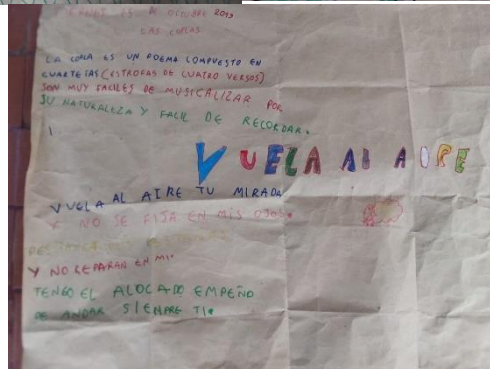 DE OCTUBRE 2019
LAS COPLAS
LA COPLA ES UN POEMA COMPUESTO EN
CUARTETAS (ESTROFAS DE CUATRO VERSOS)
SON MUY FACILES DE MUSICALIZAR POR
SU NATURALEZA Y FACIL DE RECORDAR.
VUELA AL AIRE
VUELA AL AIRE TU MIRADA
Y NO SE FIJA EN MIS OJOS.
Y NO REPARAN EN MI.
TENGO EL ALOCADO EMPEÑO
DE ANDAR SIEMPRE TI.